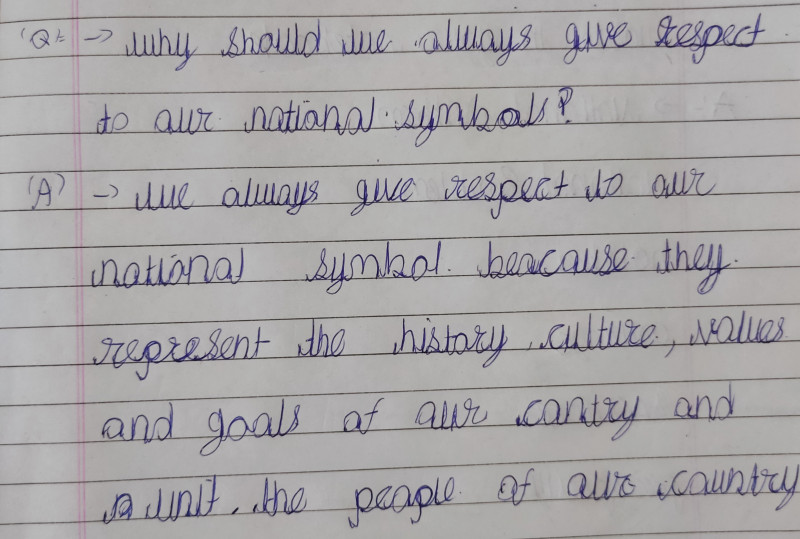 (Q: → why should we always give respect
to our national symbols?
(A) → we always give respect to our
national symbol. beacause they
represent the history, culture, values
and goals of our cantry and
unit. the people of our country